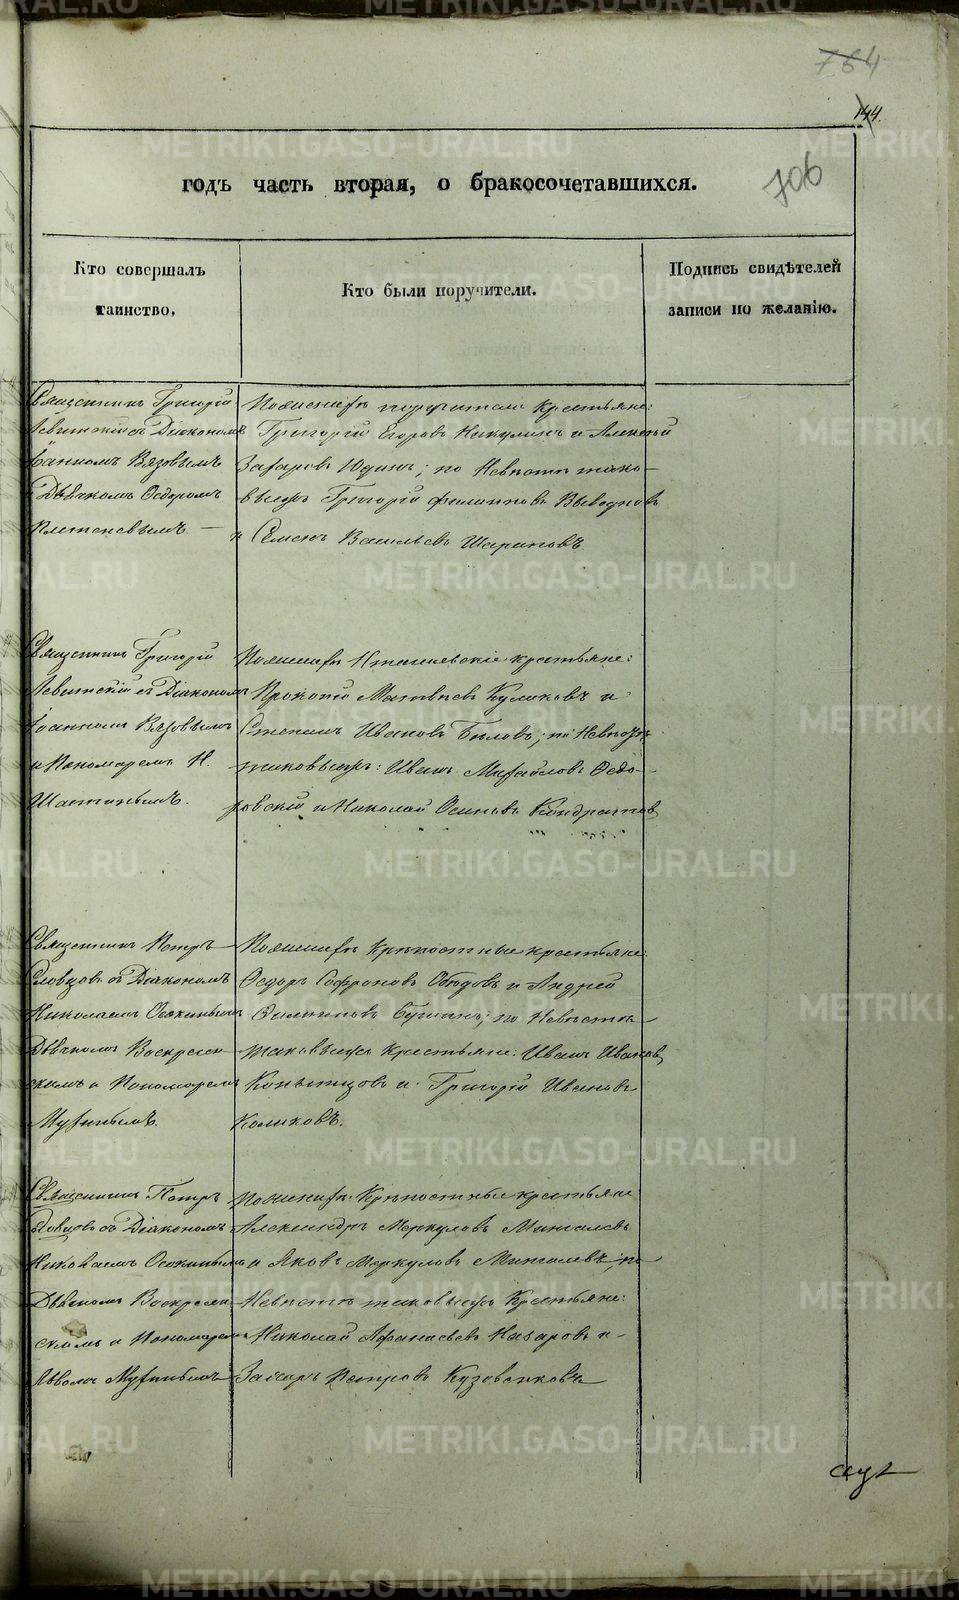 764
144.
706
годъ часть вторая, о бракосочетавшихся.
Кто совершалъ
таинство.
Кто были поручители.
Подпись свидѣтелей
записи по желанію.
Священникъ Григорій
Левитскій съ Діакономъ
Іоанномъ Вязовымъ
и Дьячкомъ Ѳедоромъ
Плетеневымъ
По женихѣ поручители Крестьяне:
Григорій Егоровъ Никулинъ и Алексѣй
Захаровъ Юдинъ; по Невѣстѣ тако-
выежъ Григорій Филиповъ
и Семенъ Васильевъ Шараповъ
Священникъ Григорій
Левитскій съ Діакономъ
Іоанномъ Вязовымъ
и Пономаремъ Н.
По женихѣ крестьяне:
Прокопій Матвѣевъ Куликовъ и
Степанъ Ивановъ Бѣловъ; по Невѣстѣ
таковыежъ: Иванъ Михайловъ Ѳедо-
ровскій и Николай Осиповъ Кондратовъ
Священникъ Петръ
Словцовъ съ Діакономъ
Николаемъ
Дьячкомъ Воскресен-
скимъ и Пономаремъ
Мухинымъ.
По женихѣ Крѣпостные крестьяне:
Ѳедоръ Софроновъ и Андрей
Филиповъ по Невѣстѣ
таковыежъ Крестьяне: Иванъ Ивановъ
Копытовъ и Григорій Ивановъ
Коликовъ.
Священникъ Петръ
Словцовъ съ Діакономъ
Николаемъ
Дьячкомъ Воскресен-
скимъ и Пономаремъ
Львомъ Мухинымъ
По женихѣ Крѣпостные крестьяне
Александръ Меркуловъ Мингалевъ
и Яковъ Меркуловъ Мингалевъ, по
Невѣстѣ таковыежъ Крестьяне:
Николай Афанасьевъ Назаровъ и
Захаръ Петровъ Кузовенковъ
METRIKI.GASO-URAL.RU